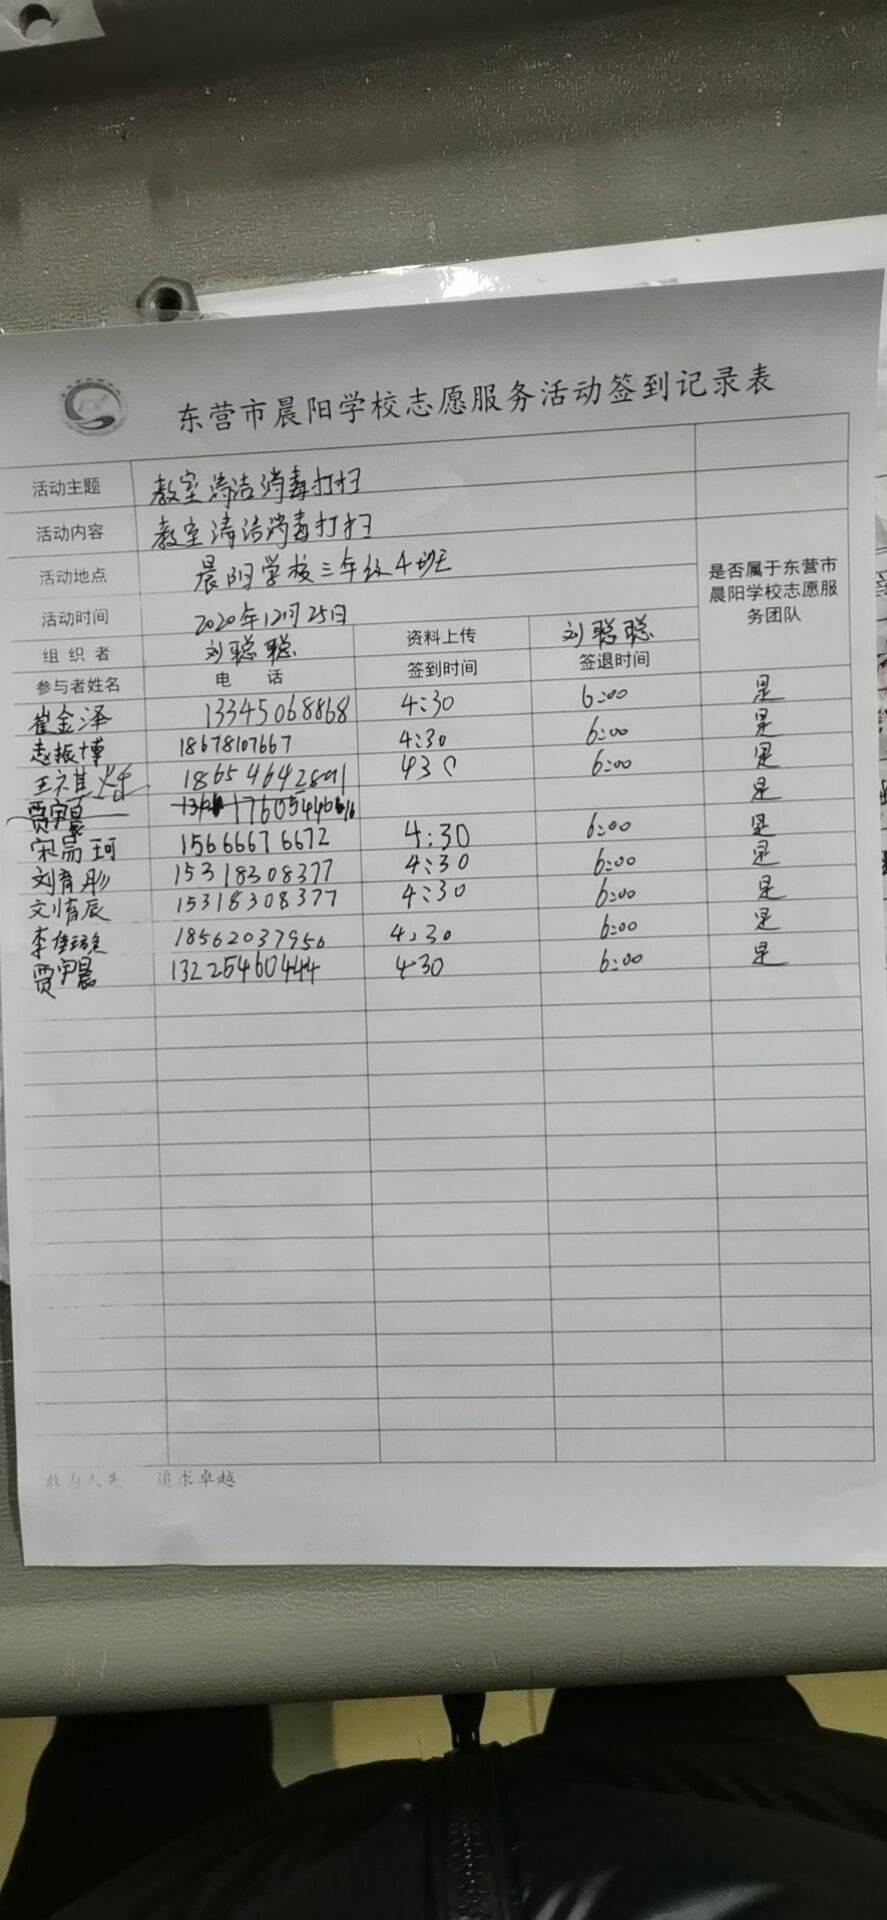 东营市晨阳学校志愿服务活动签到记录表
活动主题 教室清洁消毒打扫
活动内容 教室清洁消毒打扫
活动地点 晨阳学校三年级4班
活动时间 2020年12月25日
是否属于东营市
晨阳学校志愿服
务团队
组织者 刘聪聪 资料上传 刘聪聪
参与者姓名 电话 签到时间 签退时间
崔金泽 13345068868 4:30 6:00 是
赵振博 18678107667 4:30 6:00 是
王祺 430 6:00 是
贾宇晨 是
宋易珂 15666676672 4:30 6:00 是
刘育彤 15318308377 4:30 6:00 是
刘育辰 15318308377 4:30 6:00 是
李 18562037956 4:30 6:00 是
贾宇晨 13225460444 4:30 6:00 是
敢为人先 追求卓越